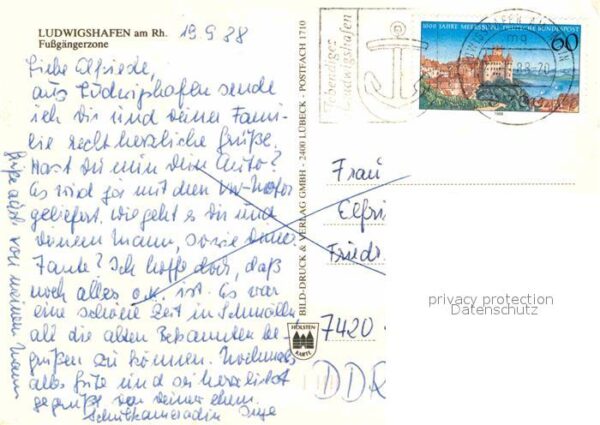 LUDWIGSHAFEN am Rh.
Fußgängerzone
19.9.88
Liebe Elfriede,
aus Ludwigshafen sende
ich Dir und Deiner Fami-
lie recht herzliche Grüße.
Hast Du nun Dein Auto?
Es wird ja mit dem VW-Motor
geliefert. Wie geht es Dir und
Deinem Mann, sowie Deiner
Tante? Ich hoffe doch, daß
noch alles o.k. ist. Es war
eine schöne Zeit in Schmölln
all die alten Bekannten be-
grüßen zu können. Nochmals
alles Gute und sei herzlichst
gegrüßt von Deiner ehem.
Schulkameradin Inge
Grüße auch von meinem Mann
BILD-DRUCK & VERLAG GMBH - 2400 LÜBECK - POSTFACH 1710
HOLSTEN
KARTE
Lebendiges
Ludwigshafen
1000 JAHRE MEERSBURG DEUTSCHE BUNDESPOST
60
1988
LUDWIGSHAFEN AM RHEIN
Frau
Elfri
Friedr.
7420
DDR
privacy protection
Datenschutz